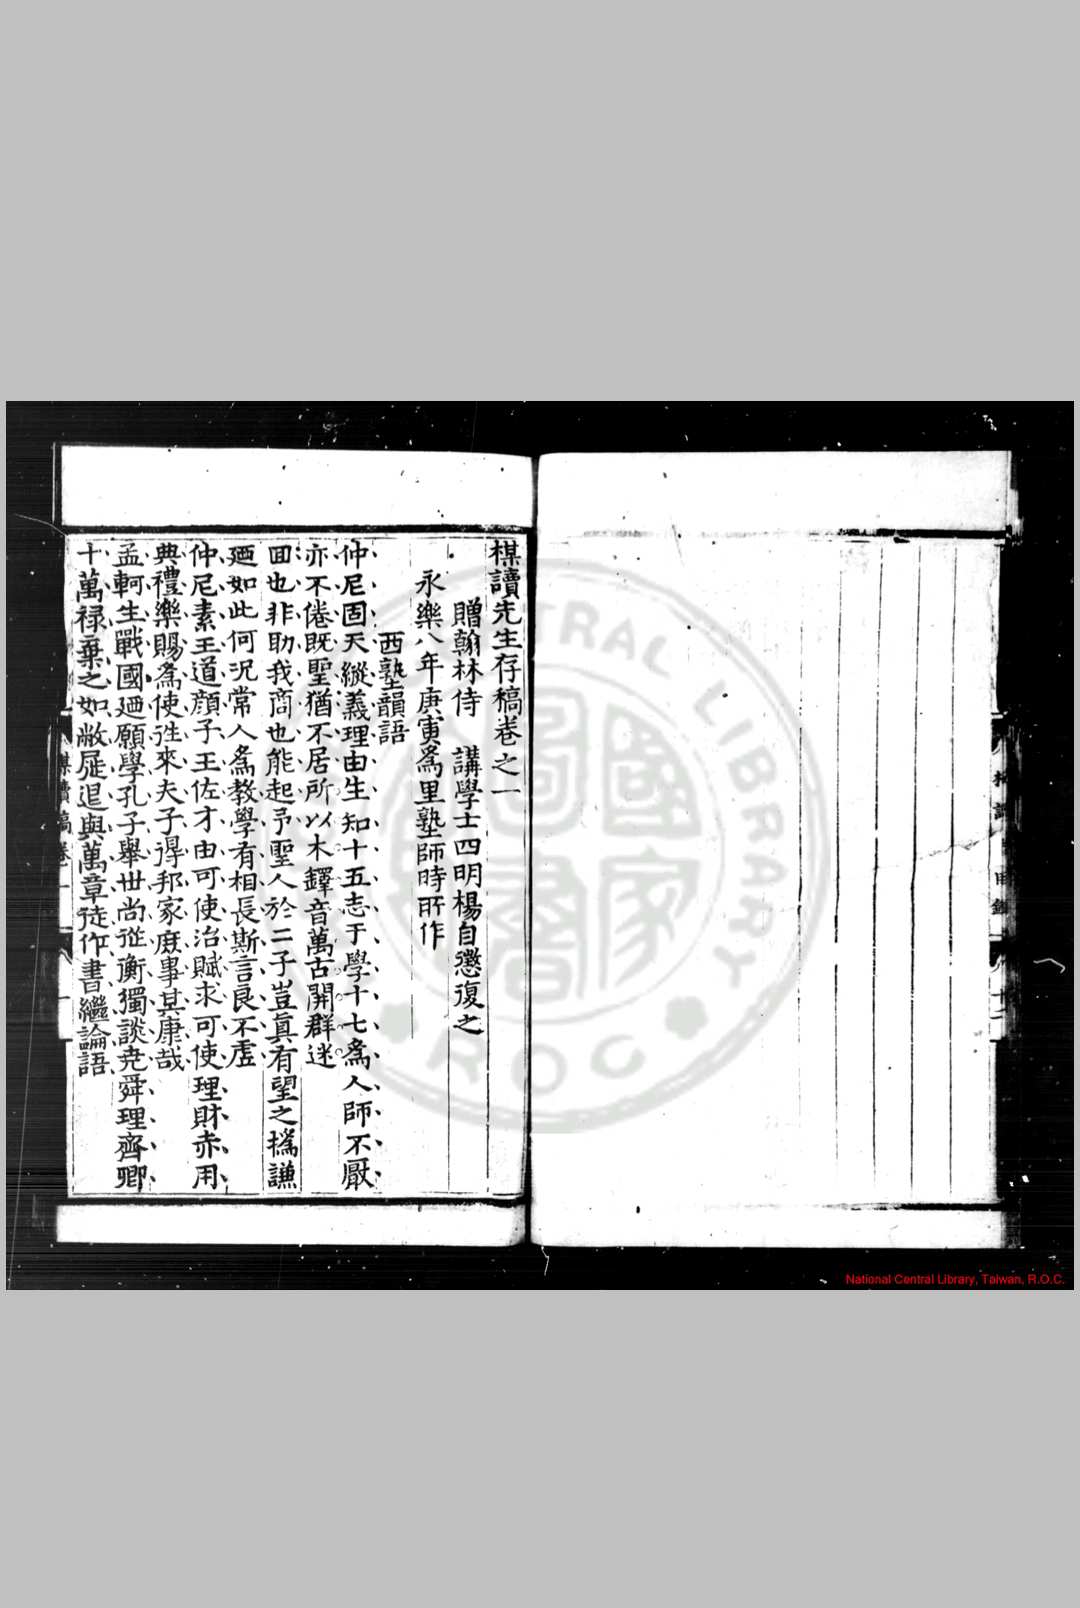 楳讀先生存稿卷之一
贈翰林侍 講學士四明楊自懲復之
永樂八年庚寅爲里塾師時所作
西塾韻語
仲尼固天縱義理由生知十五志于學十七爲人師不厭
亦不倦既聖猶不居所以木鐸音萬古開群迷
回也非助我商也能起予聖人於二子豈眞有望之撝謙
廼如此何況常人爲教學有相長斯言良不虛
仲尼素王道顔子王佐才由可使治賦求可使理財赤用
典禮樂賜爲使徃來夫子得邦家庶事其康哉
孟軻生戰國廼願學孔子舉世尚從衡獨談尭舜理齊卿
十萬禄棄之如敝屣退與萬章徒作書繼論語
楳讀稿卷一
一
CENTRAL LIBRARY
R O C
國家圖書
National Central Library, Taiwan, R.O.C.